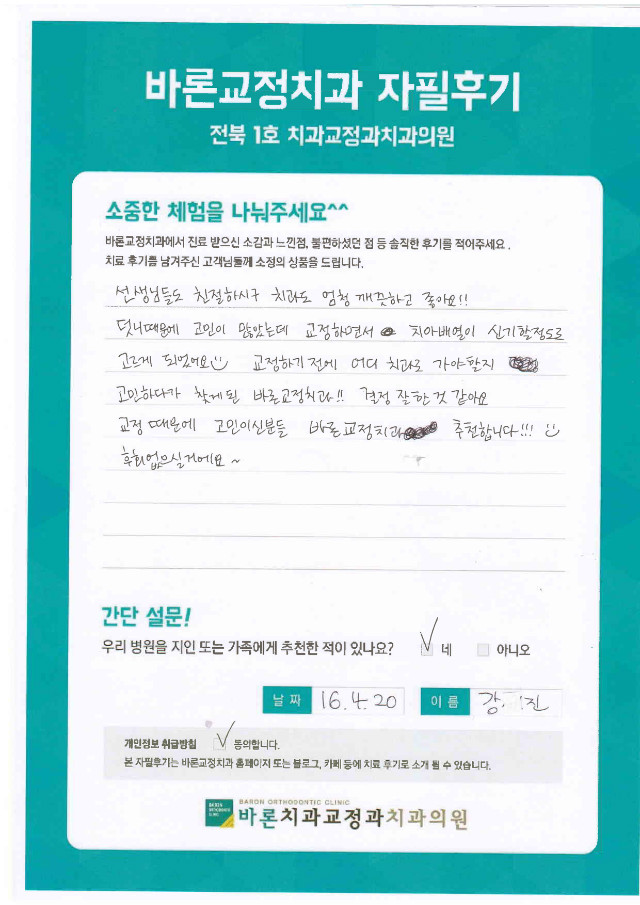 바론교정치과 자필후기
전북 1호 치과교정과치과의원
소중한 체험을 나눠주세요^^
바론교정치과에서 진료 받으신 소감과 느낀점, 불편하셨던 점 등 솔직한 후기를 적어주세요.
치료 후기를 남겨주신 고객님들께 소정의 상품을 드립니다.
선생님들도 친절하시구 치과도 엄청 깨끗하고 좋아요!!
덧니때문에 고민이 많았는데 교정하면서 치아배열이 신기할정도로
고르게 되었어요 교정하기 전에 어디 치과로 가야할지
고민하다가 찾게된 바론교정치과!! 결정 잘한것 같아요
교정 때문에 고민이신분들 바론교정치과 추천합니다!!!
후회없으실거에요~
간단 설문!
우리 병원을 지인 또는 가족에게 추천한 적이 있나요? 네 아니오
날짜 16.4.20 이름 강 진
개인정보 취급방침 동의합니다.
본 자필후기는 바론교정치과 홈페이지 또는 블로그, 카페 등에 치료 후기로 소개 될 수 있습니다.
BARON ORTHODONTIC CLINIC
바론치과교정과치과의원